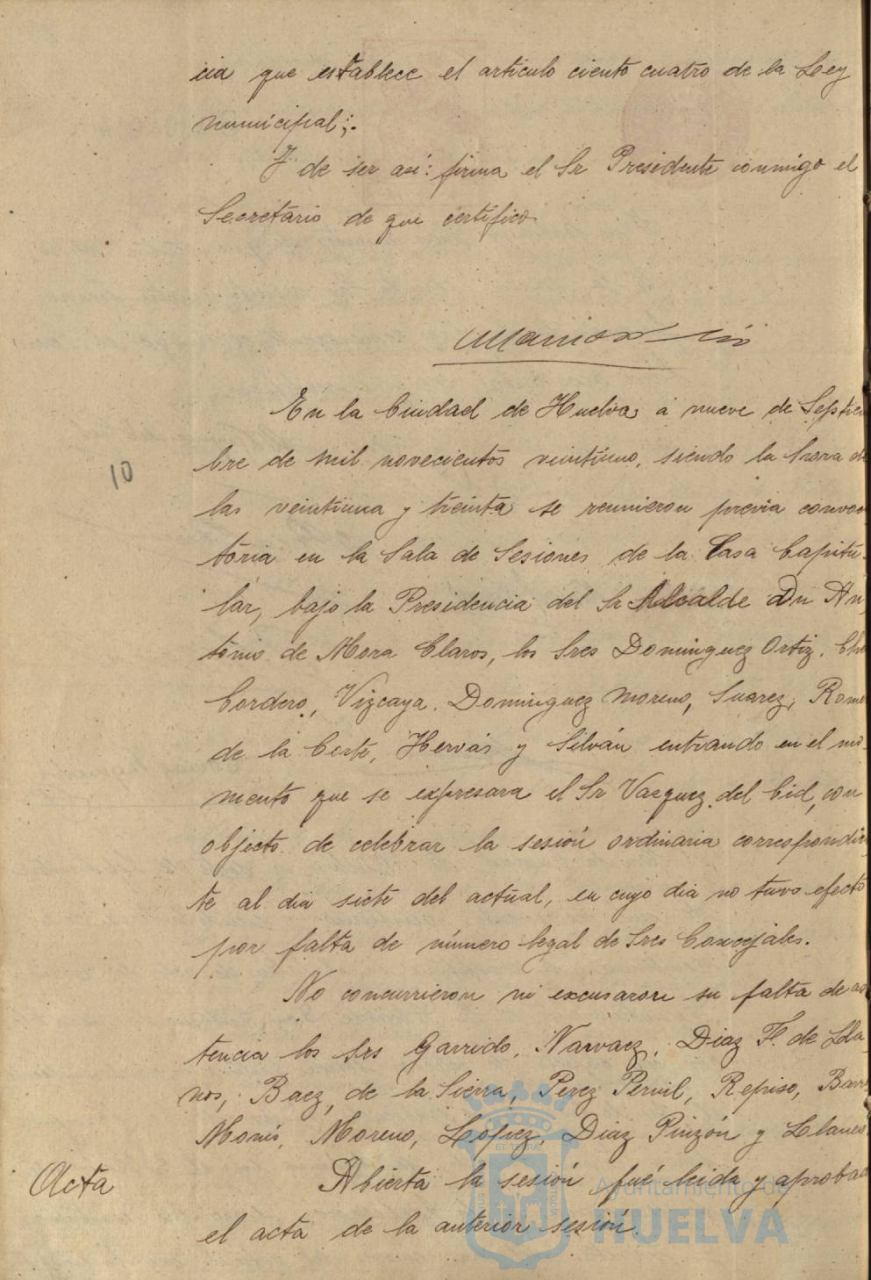 cia que establece el artículo ciento cuatro de la Ley
municipal;.
Y de ser así: firma el Sr Presidente conmigo el
Secretario de que certifico
En la Ciudad de Huelva á nueve de Septiem
bre de mil novecientos veintiuno, siendo la hora de
las veintiuna y treinta se reunieron previa convoca
toria en la Sala de Sesiones de la Casa Capitu-
lar, bajo la Presidencia del Sr Alcalde Dn An
tonio de Mora Claros, los Sres Dominguez Ortiz.
Cordero, Vizcaya. Dominguez Moreno, Suarez, Rome
de la Corte, Hervás y Silván entrando en el mo-
mento que se expresara el Sr Vazquez del Cid, con
objecto de celebrar la sesión ordinaria correspondien
te al dia siete del actual, en cuyo dia no tuvo efecto
por falta de número legal de Sres Concejales.
No concurrieron ni excusaron su falta de as
10
tencia los Srs Garrido, Narvaez, Diaz F. de Lla-
nos, Baez, de la Sierra, Perez Pervil, Repiso, Barr
Monís, Moreno, López, Diaz Pinzón y Llanes
Acta
Abierta la sesión fué leida y aprobad
el acta de la anterior sesión.
Ayuntamiento de
HUELVA